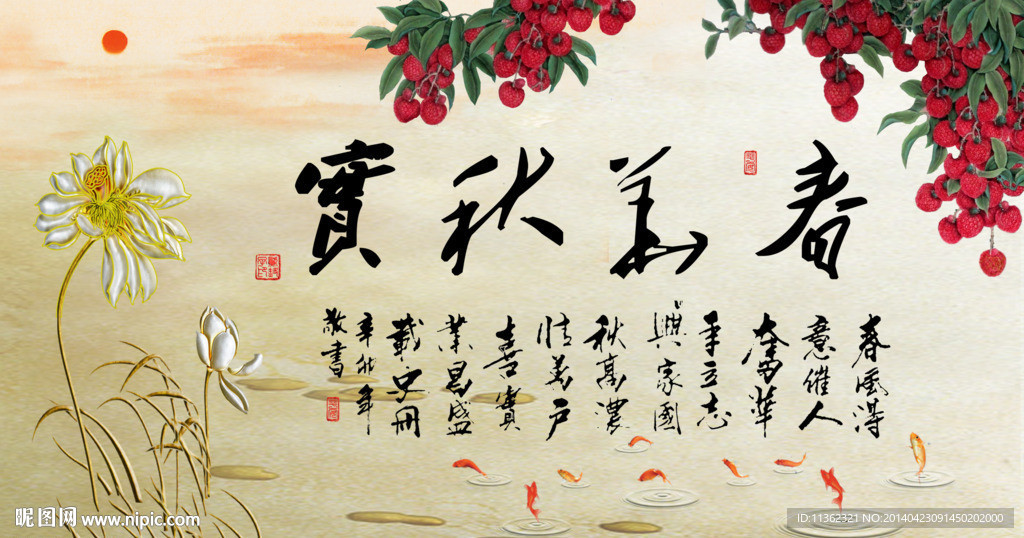 春華秋實
春風得
意催人
奮華
年立志
興家國
秋高濃
情萬戶
喜實
業昌盛
載史冊
辛卯年
敬書
昵图网 www.nipic.com
ID:11362321 NO:20140423091450202000